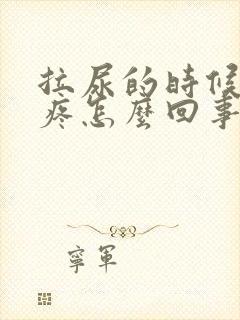 拉尿的時候
疼怎麼回事
寧軍